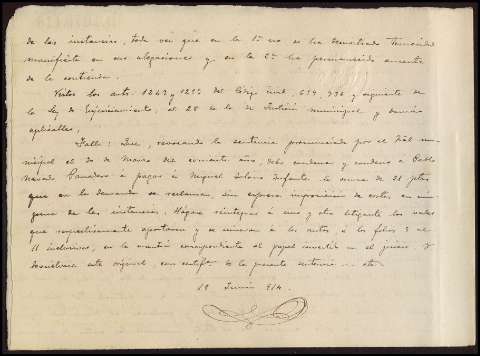 de las instancias, toda vez que en la 1ª no se ha demostrado temeridad
manifiesta en sus alegaciones y en la 2ª ha permanecido ausente
de la contienda.
Vistos los arts. 1243 y del Código civil, 659, y siguiente de
la ley de Enjuiciamiento, el 28 de la de Justicia municipal y demás
aplicables,
Fallo: Que, revocando la sentencia pronunciada por el mu-
nicipal el 30 de Marzo del corriente año, debo condenar y condeno á Pablo
á pagar á Miguel Infante la suma de 21 ptas.
que en la demanda se reclaman, sin expresa imposición de costas en nin-
guna de las instancias. Hágase reintegrar á uno y otro litigante los
que respectivamente aportaron y se unieron á los autos, á los folios 8 al
11 inclusives, en la cuantía correspondiente al papel invertido en el juicio, y
devuélvase este original, con certifn de la presente sentencia
19 Junio 914.